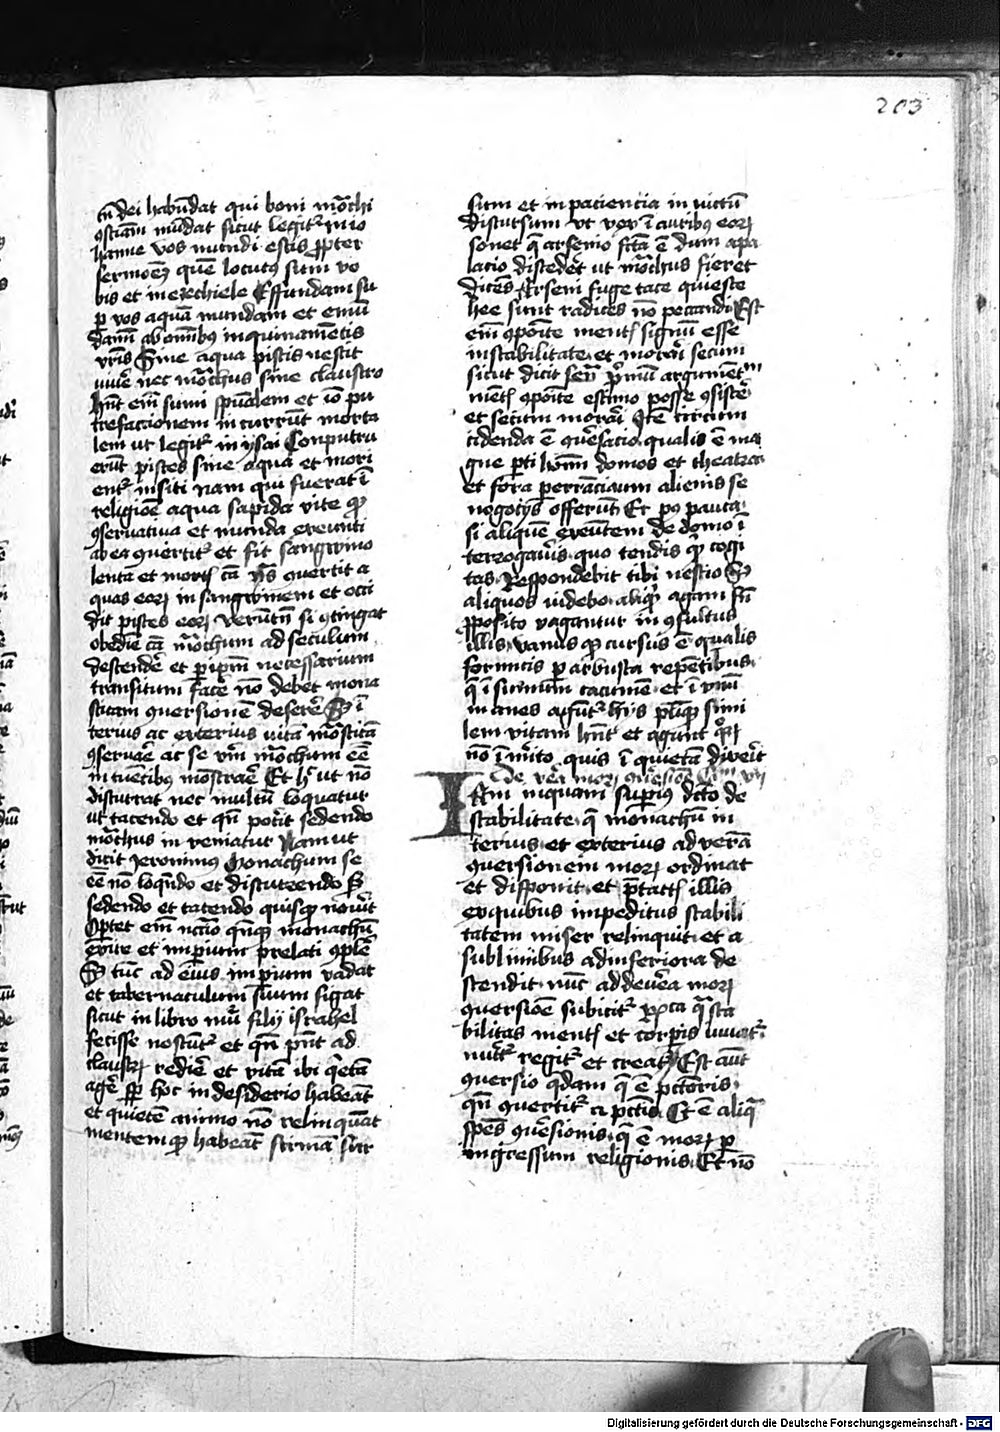 203
tñ dei habūdat qui boni mōchi
ꝯsciam mūdat sicut legitᷣ in io
hanne vos mundi estis ꝓpter
sermoēȝ quē locutꝰ sum vo
bis et in ezechiele Effundam su
ꝑ vos aquā mundam et emū
dam̄ ab om̄ibꝰ inquinamētis
vr̄is Sine aqua piscis nescit
viuē nec mōchus sine claustro
hn̄t em̄ sumi spūalem et iō pu
trefactionem incurrūt morta
lem ut legitᷣ in ysai Conputru
erūt pisces sine aqua et mori
entᷣ in siti nam qui fuerat ī
religiōe aqua sapida vite ꝙ
ꝯseruatiua et munda exeunti
ab ea ꝯuertitᷣ et fit sangwino
lenta et mortꝭ cā vn̄ ꝯuertit a
quas eoꝝ in sangwinem et occi
dit pisces eoꝝ verūtn̄ si ꝯtingat
obediē cā mōchum ad seculum
descendē et ꝑ ip̄m necessarium
transitum facē nō debet mona
sticam ꝯuersionē deserē Sꝫ ī
terius ac exterius vitā mōsticā
ꝯseruaē ac se vm̄ mōchum eē
intuētibꝰ mōstraē Et hᷓ ut nō
discurrat nec multū loquatur
ut tacendo et qn̄ poᷣit sedendo
mōchus inueniatur Nam ut
dicit Jeronimus Monachum se
eē nō loqn̄do et discurrendo sꝫ
sedendo et tacendo quisqꝫ nouᷣit
Oportet em̄ nccīo qn̄qꝫ monachū
exire et imꝑium prelati ꝯplē
Sꝫ tūc ad eius imꝑium vadat
et tabernaculum suum figat
sicut in libro nuᷣ filij israhel
fecisse noscūtᷣ et qn̄ pn̄t ad
claustꝝ rediē et vitā ibi qᷓetā
agē sꝑ hoc in desiderio habeāt
et quietē animo nō relinquāt
mentemqꝫ habeāt firmā sūr
situm et in paciencia in victū
discursum vt vox ī auribꝰ eoꝝ
sonet q̄ arsenio fc̄ta ē dum a pa
lacio discedēt ut mōchus fieret
dicēs Arseni fuge tace quiesce
hee sunt radices nō peccandi Est
em̄ ꝯpoīte mentꝭ signū esse
in stabilitate et morāi secum
sicut dicit sen̄ pᷣmū argumētm
mētꝭ ꝯpoīte estimo posse ꝯsistē
et secum morāi Ite circum
cidenda ē ꝯuᷣsacio qualis ē ma
gne ꝑti hoīm domos et theatra
et fora perrāciaum alienis se
nogocijs offerūt Et pᷤ pauca
si aliquē exeūtem de domo ī
terrogaᷣis quo tendis qᷓ cogi
tas Respondebit tibi nescio Sꝫ
aliquos videbo aliqᷓ agam sn̄
ꝓposito vagantur inꝯsultus
illis vanus qꝫ cursus ē qualis
formicis ꝑ arbusta repētibus
q̄ ī sūmum cacumē et ī ymū
inanes agūtᷣ hijs pleꝙ simi
lem vitam hn̄t et agunt qͦꝝ
nō īmᷣito quis ī quietā dixeᷣit
De veᷓ moꝝ ꝯuᷣsiōe Cam vij
IAm inquam suꝑius dcō de
stabilitate q̄ monachū in
terius et exterius ad verā
ꝯuersionem moꝝ ordinat
et disponit et pᷓtactꝭ illis
ex quibus impeditus stabili
tatem miser relinquit et a
sublimibus ad inferiora de
scendit nūc ad de veᷓa moꝝ
ꝯuersiōe subicitᷣ ꝓxᷓ qᷓ sta
bilitas mentꝭ et corꝑis
nutᷣ regitᷣ et creatᷣ Est aūt
ꝯuersio qdam q̄ ē pcc̄toris
qn̄ ꝯuertitᷣ a pctīs Et ē aliqᷓ
spēs ꝯuᷣsionis q̄ ē moꝝ ꝑ
ingressum religionis Et nō
Digitalisierung gefördert durch die Deutsche Forschungsgemeinschaft - DFG